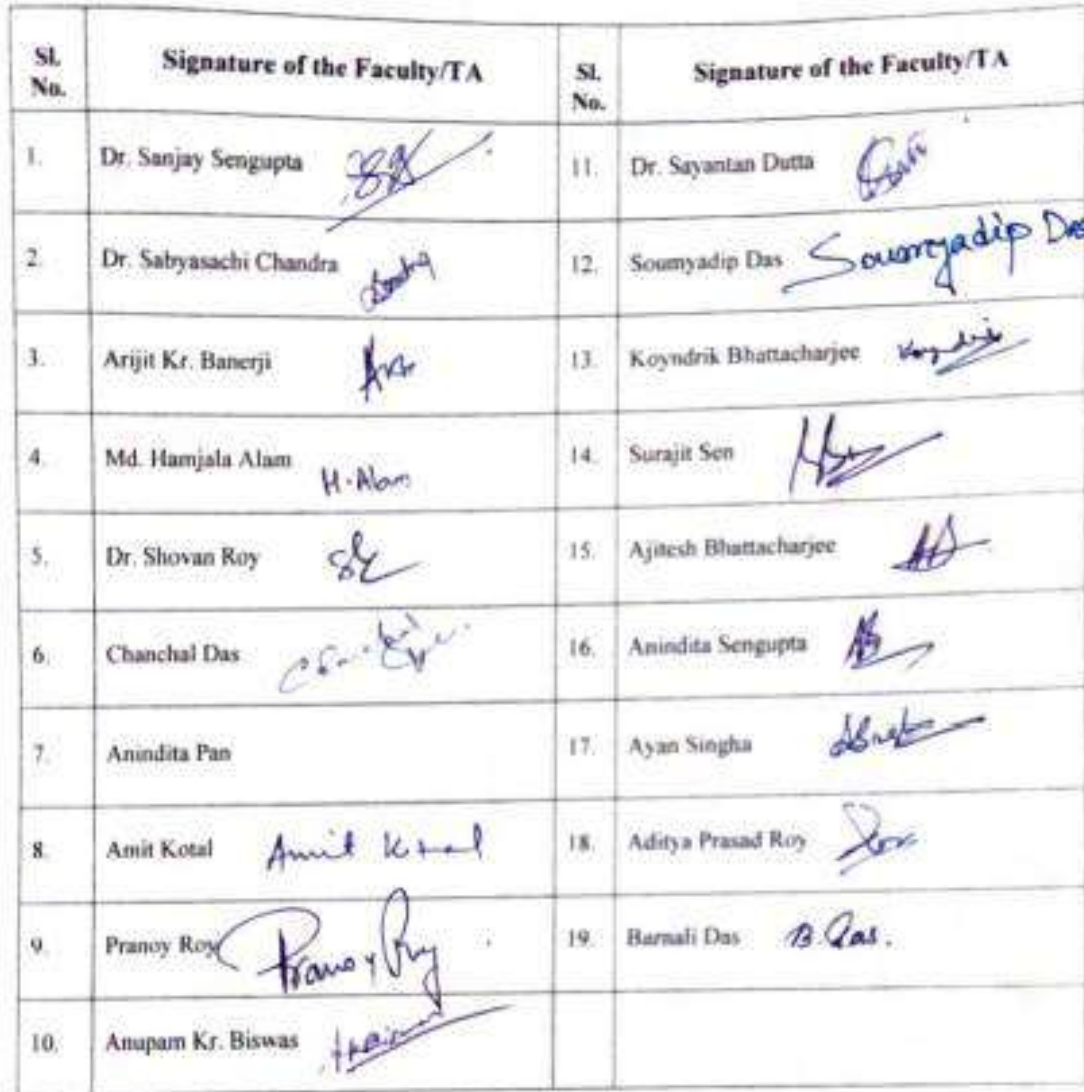 Sl. No. Signature of the Faculty/TA Sl. No. Signature of the Faculty/TA
1. Dr. Sanjay Sengupta 11. Dr. Sayantan Dutta
2. Dr. Sabyasachi Chandra 12. Soumyadip Das Soumyadip Das
3. Arijit Kr. Banerji 13. Koyndrik Bhattacharjee
4. Md. Hamjala Alam H. Alam 14. Surajit Sen
5. Dr. Shovan Roy 15. Ajitesh Bhattacharjee
6. Chanchal Das 16. Anindita Sengupta
7. Anindita Pan 17. Ayan Singha
8. Amit Kotal Amit Kotal 18. Aditya Prasad Roy
9. Pranoy Roy Pranoy Roy 19. Barnali Das B. Das.
10. Anupam Kr. Biswas